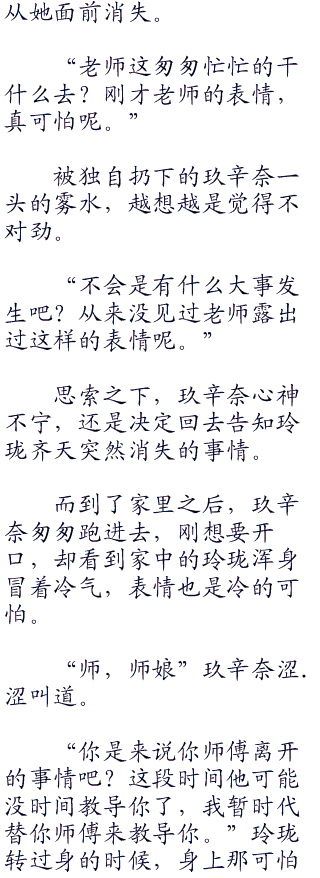 从她面前消失。
“老师这匆匆忙忙的干
什么去？刚才老师的表情，
真可怕呢。”
被独自扔下的玖辛奈一
头的雾水，越想越是觉得不
对劲。
“不会是有什么大事发
生吧？从来没见过老师露出
过这样的表情呢。”
思索之下，玖辛奈心神
不宁，还是决定回去告知玲
珑齐天突然消失的事情。
而到了家里之后，玖辛
奈匆匆跑进去，刚想要开
口，却看到家中的玲珑浑身
冒着冷气，表情也是冷的可
怕。
“师，师娘”玖辛奈涩.
涩叫道。
“你是来说你师傅离开
的事情吧？这段时间他可能
没时间教导你了，我暂时代
替你师傅来教导你。”玲珑
转过身的时候，身上那可怕